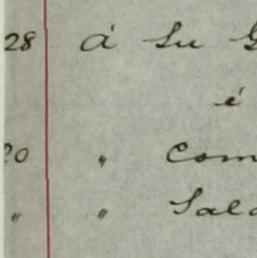 28 á Su G
é
20 " Com
" " Sald